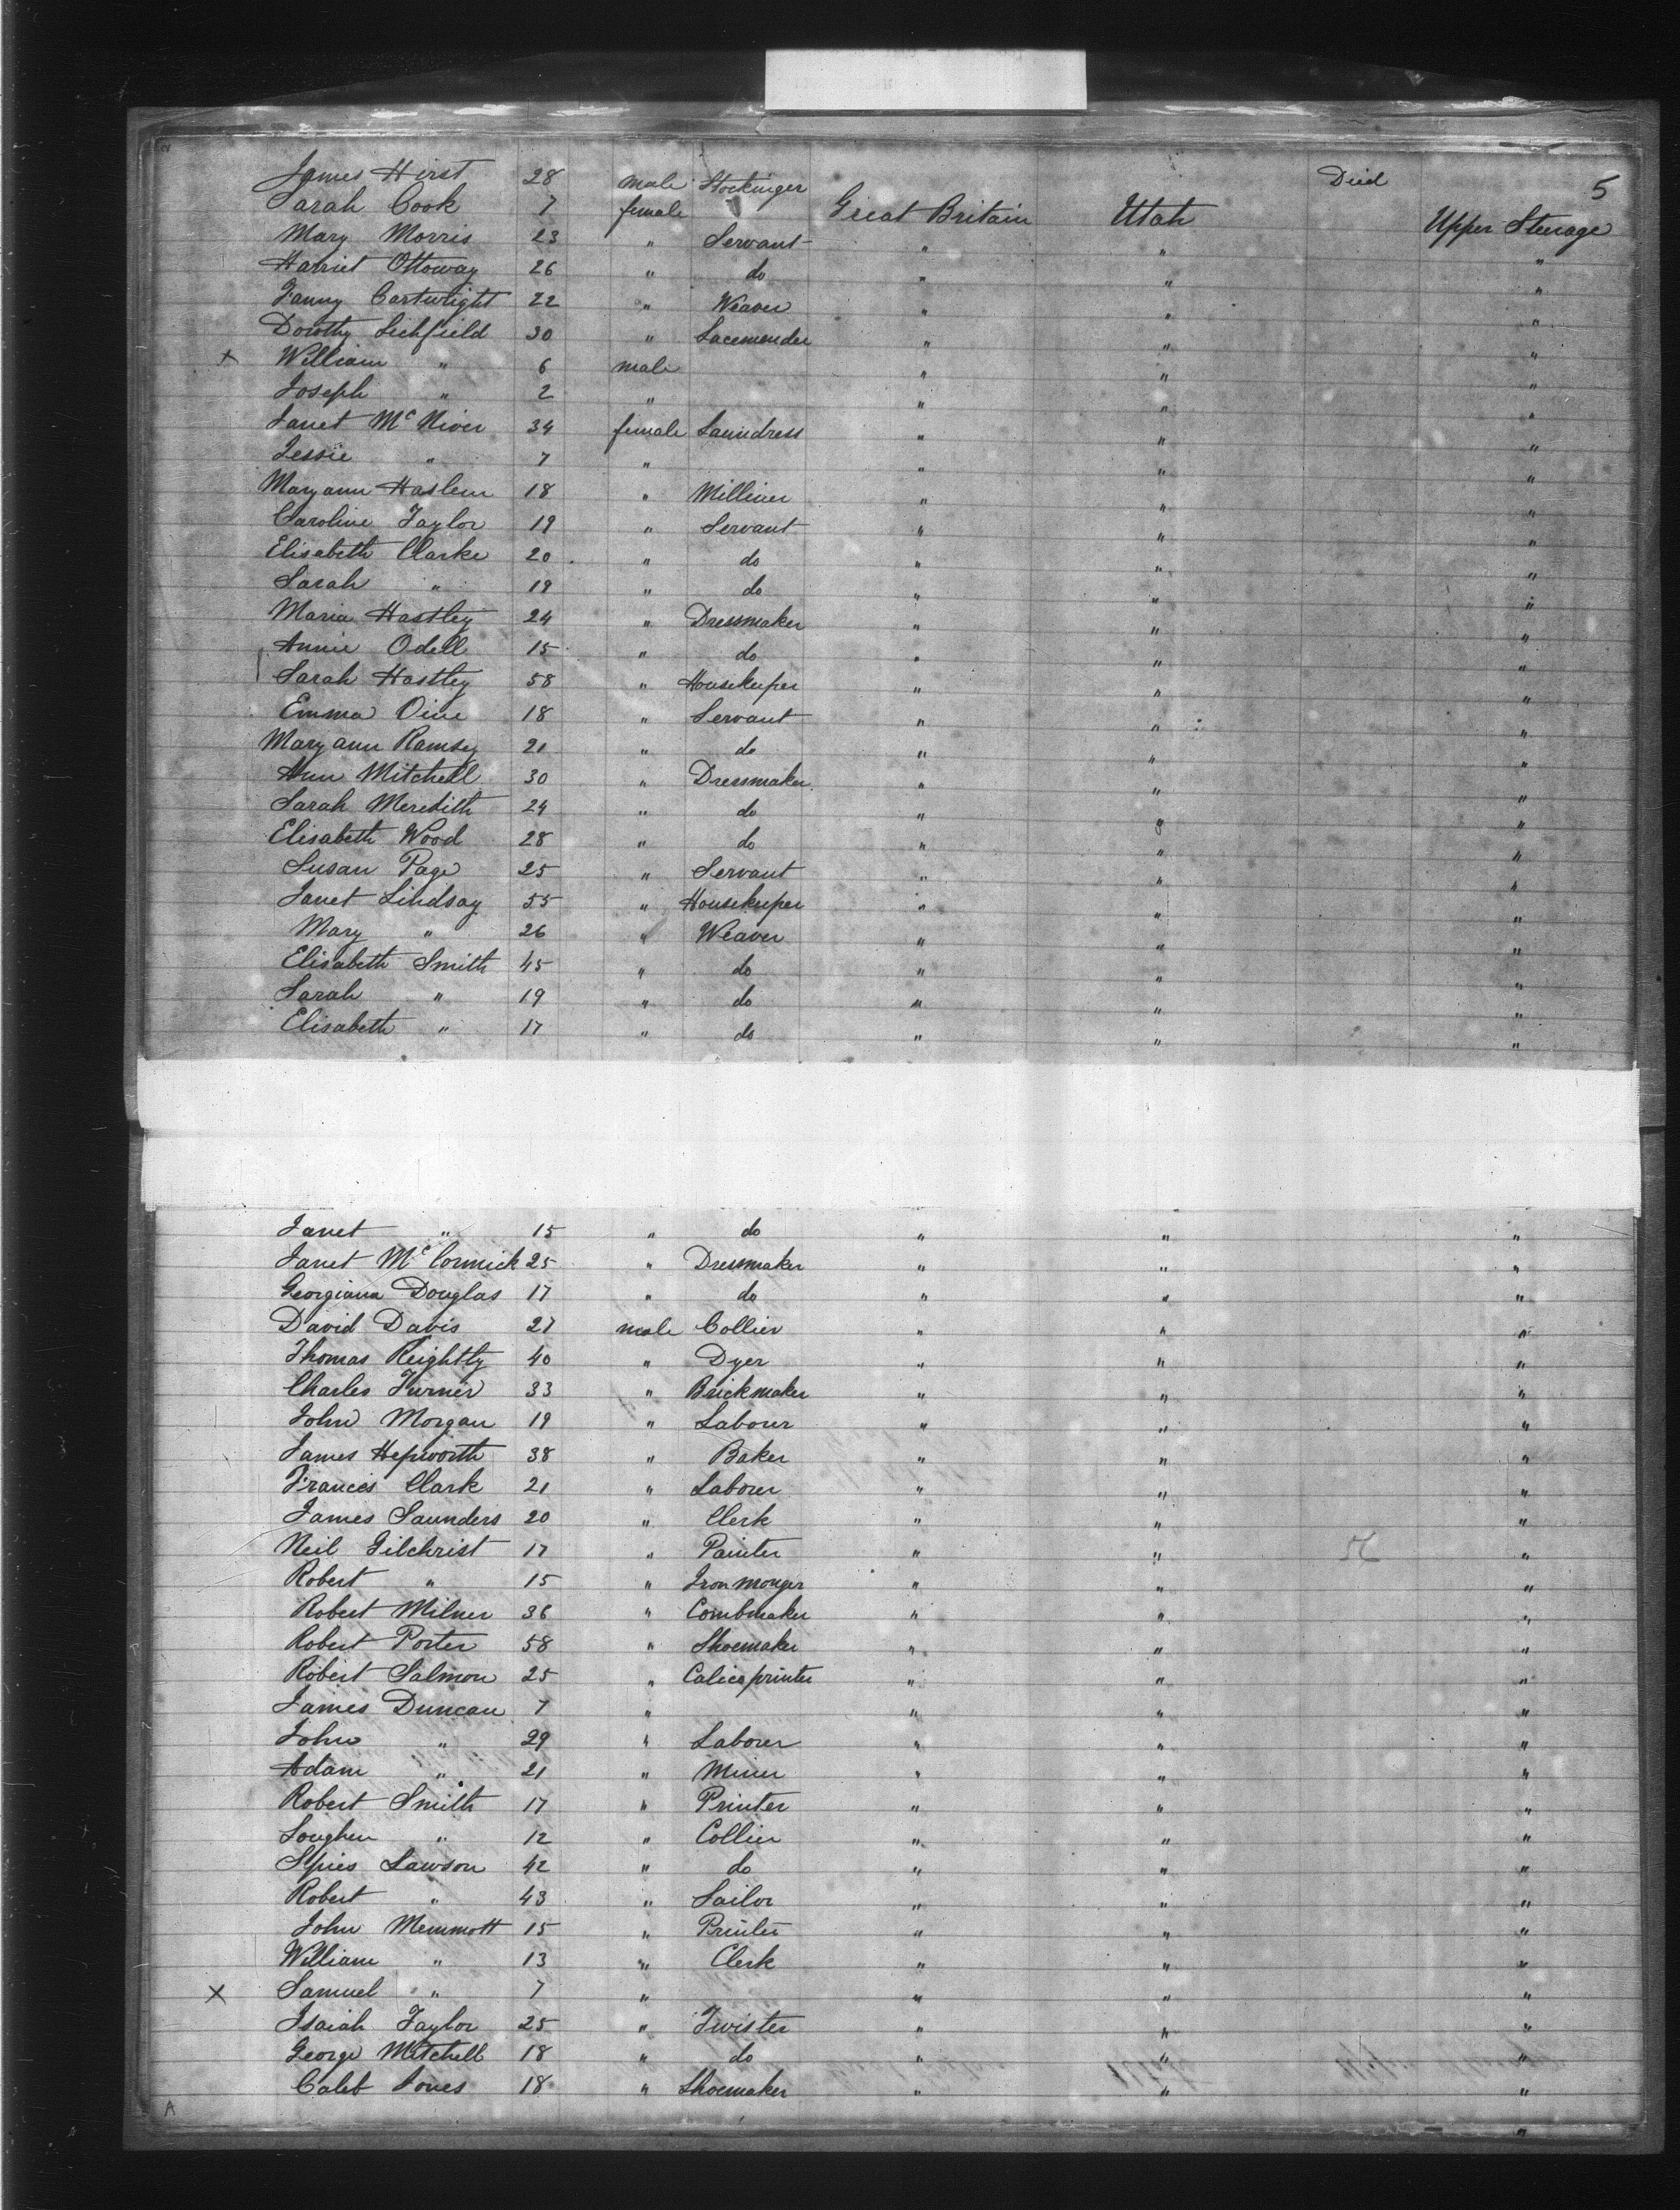 5
James Hirst 28 male Stockinger Died
Sarah Cook 7 female Great Britain Utah Upper Steerage
Mary Morris 23 " Servant " " "
Harriet Ottoway 26 " do " " "
Fanny Cartwright 22 " Weaver " " "
Dorothy Lichfield 30 " Lacemender " " "
x William " 6 male " " "
Joseph " 2 " " " "
Janet McNiver 34 female Laundress " " "
Jessie " 7 " " " "
Maryann Haslem 18 " Milliner " " "
Caroline Taylor 19 " Servant " " "
Elisabeth Clarke 20 " do " " "
Sarah " 19 " do " " "
Maria Hastley 24 " Dressmaker " " "
Annie Odell 15 " do " " "
Sarah Hastley 58 " Housekeeper " " "
Emma 18 " Servant " " "
Maryann Ramsey 21 " do " " "
Ann Mitchell 30 " Dressmaker " " "
Sarah Meredith 24 " do " " "
Elisabeth Wood 28 " do " " "
Susan Page 25 " Servant " " "
Janet Lindsay 55 " Housekeeper " " "
Mary " 26 " Weaver " " "
Elisabeth Smith 45 " do " " "
Sarah " 19 " do " " "
Elisabeth " 17 " do " " "
Janet " 15 " do " " "
Janet McCormick 25 " Dressmaker " " "
Georgiana Douglas 17 " do " " "
David Davis 27 male Collier " " "
Thomas Keightly 40 " Dyer " " "
Charles Turner 33 " Brickmaker " " "
John Morgan 19 " Laborer " " "
James Hepworth 38 " Baker " " "
Francis Clark 21 " Laborer " " "
James Saunders 20 " Clerk " " "
Neil Gilchrist 17 " Painter " " "
Robert " 15 " Iron monger " " "
Robert Milner 36 " Combmaker " " "
Robert Porter 58 " Shoemaker " " "
Robert Salmon 25 " Calico printer " " "
James Duncan 7 " " " "
John " 29 " Laborer " " "
Adam " 21 " Miner " " "
Robert Smith 17 " Printer " " "
" 12 " Collier " " "
Lawson 42 " do " " "
Robert " 43 " Sailor " " "
John Memmott 15 " Printer " " "
William " 13 " Clerk " " "
x Samuel " 7 " " " "
Isaiah Taylor 25 " Twister " " "
George Mitchell 18 " do " " "
Caleb Jones 18 " Shoemaker " " "
A "